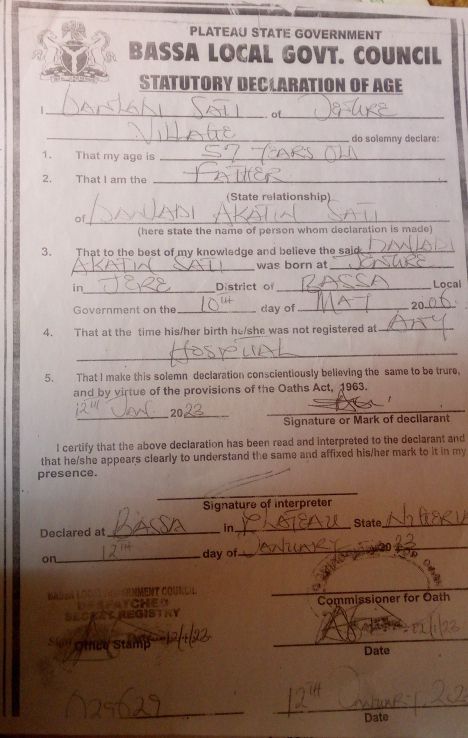 PLATEAU STATE GOVERNMENT
BASSA LOCAL GOVT. COUNCIL
STATUTORY DECLARATION OF AGE
I DANLADI SATI of JENGRE
VILLAGE do solemny declare:
1. That my age is 57 YEARS OLD
2. That I am the FATHER
(State relationship)
of DANLADI AKATIN SATI
(here state the name of person whom declaration is made)
3. That to the best of my knowledge and believe the said: DANLADI
AKATIN SATI was born at JENGRE
in JERE District of BASSA Local
Government on the 10TH day of MAY 2006
4. That at the time his/her birth he/she was not registered at ANY
HOSPITAL
5. That I make this solemn declaration conscientiously believing the same to be trure,
and by virtue of the provisions of the Oaths Act, 1963.
12TH JAN. 2023
Signature or Mark of decllarant
I certify that the above declaration has been read and interpreted to the declarant and
that he/she appears clearly to understand the same and affixed his/her mark to it in my
presence.
Signature of interpreter
Declared at BASSA in PLATEAU State, NIGERIA
on 12TH day of JANUARY 2023
BASSA LOCAL GOVERNMENT COUNCIL
DESPATCHED
SECRET REGISTRY
Commissioner for Oath
Office Stamp 12/1/23
12/1/23
Date
029629
12TH JANUARY, 202
Date